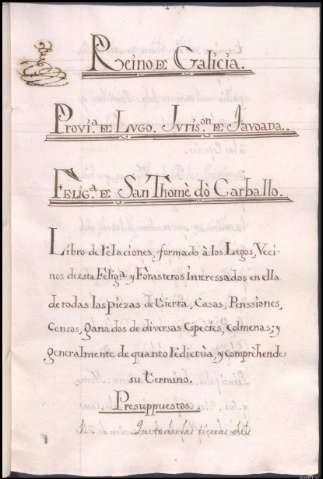 Reino de Galicia.
Prov.ª de Lugo. Juris.on de Tavoada.
Felig.ª de San Thomè dò Carballo.
Libro de Relaciones, formado à los Legos, Veci-
nos de esta Felig.ª y Forasteros Interessados en ella
de todas las piezas de tierra, Casas, Penssiones,
Censos, ganados de diversas especies, Colmenas; y
generalmente de quanto reditùa, y comprehende
su termino.
Presuppuestos
Que todas las tierras de